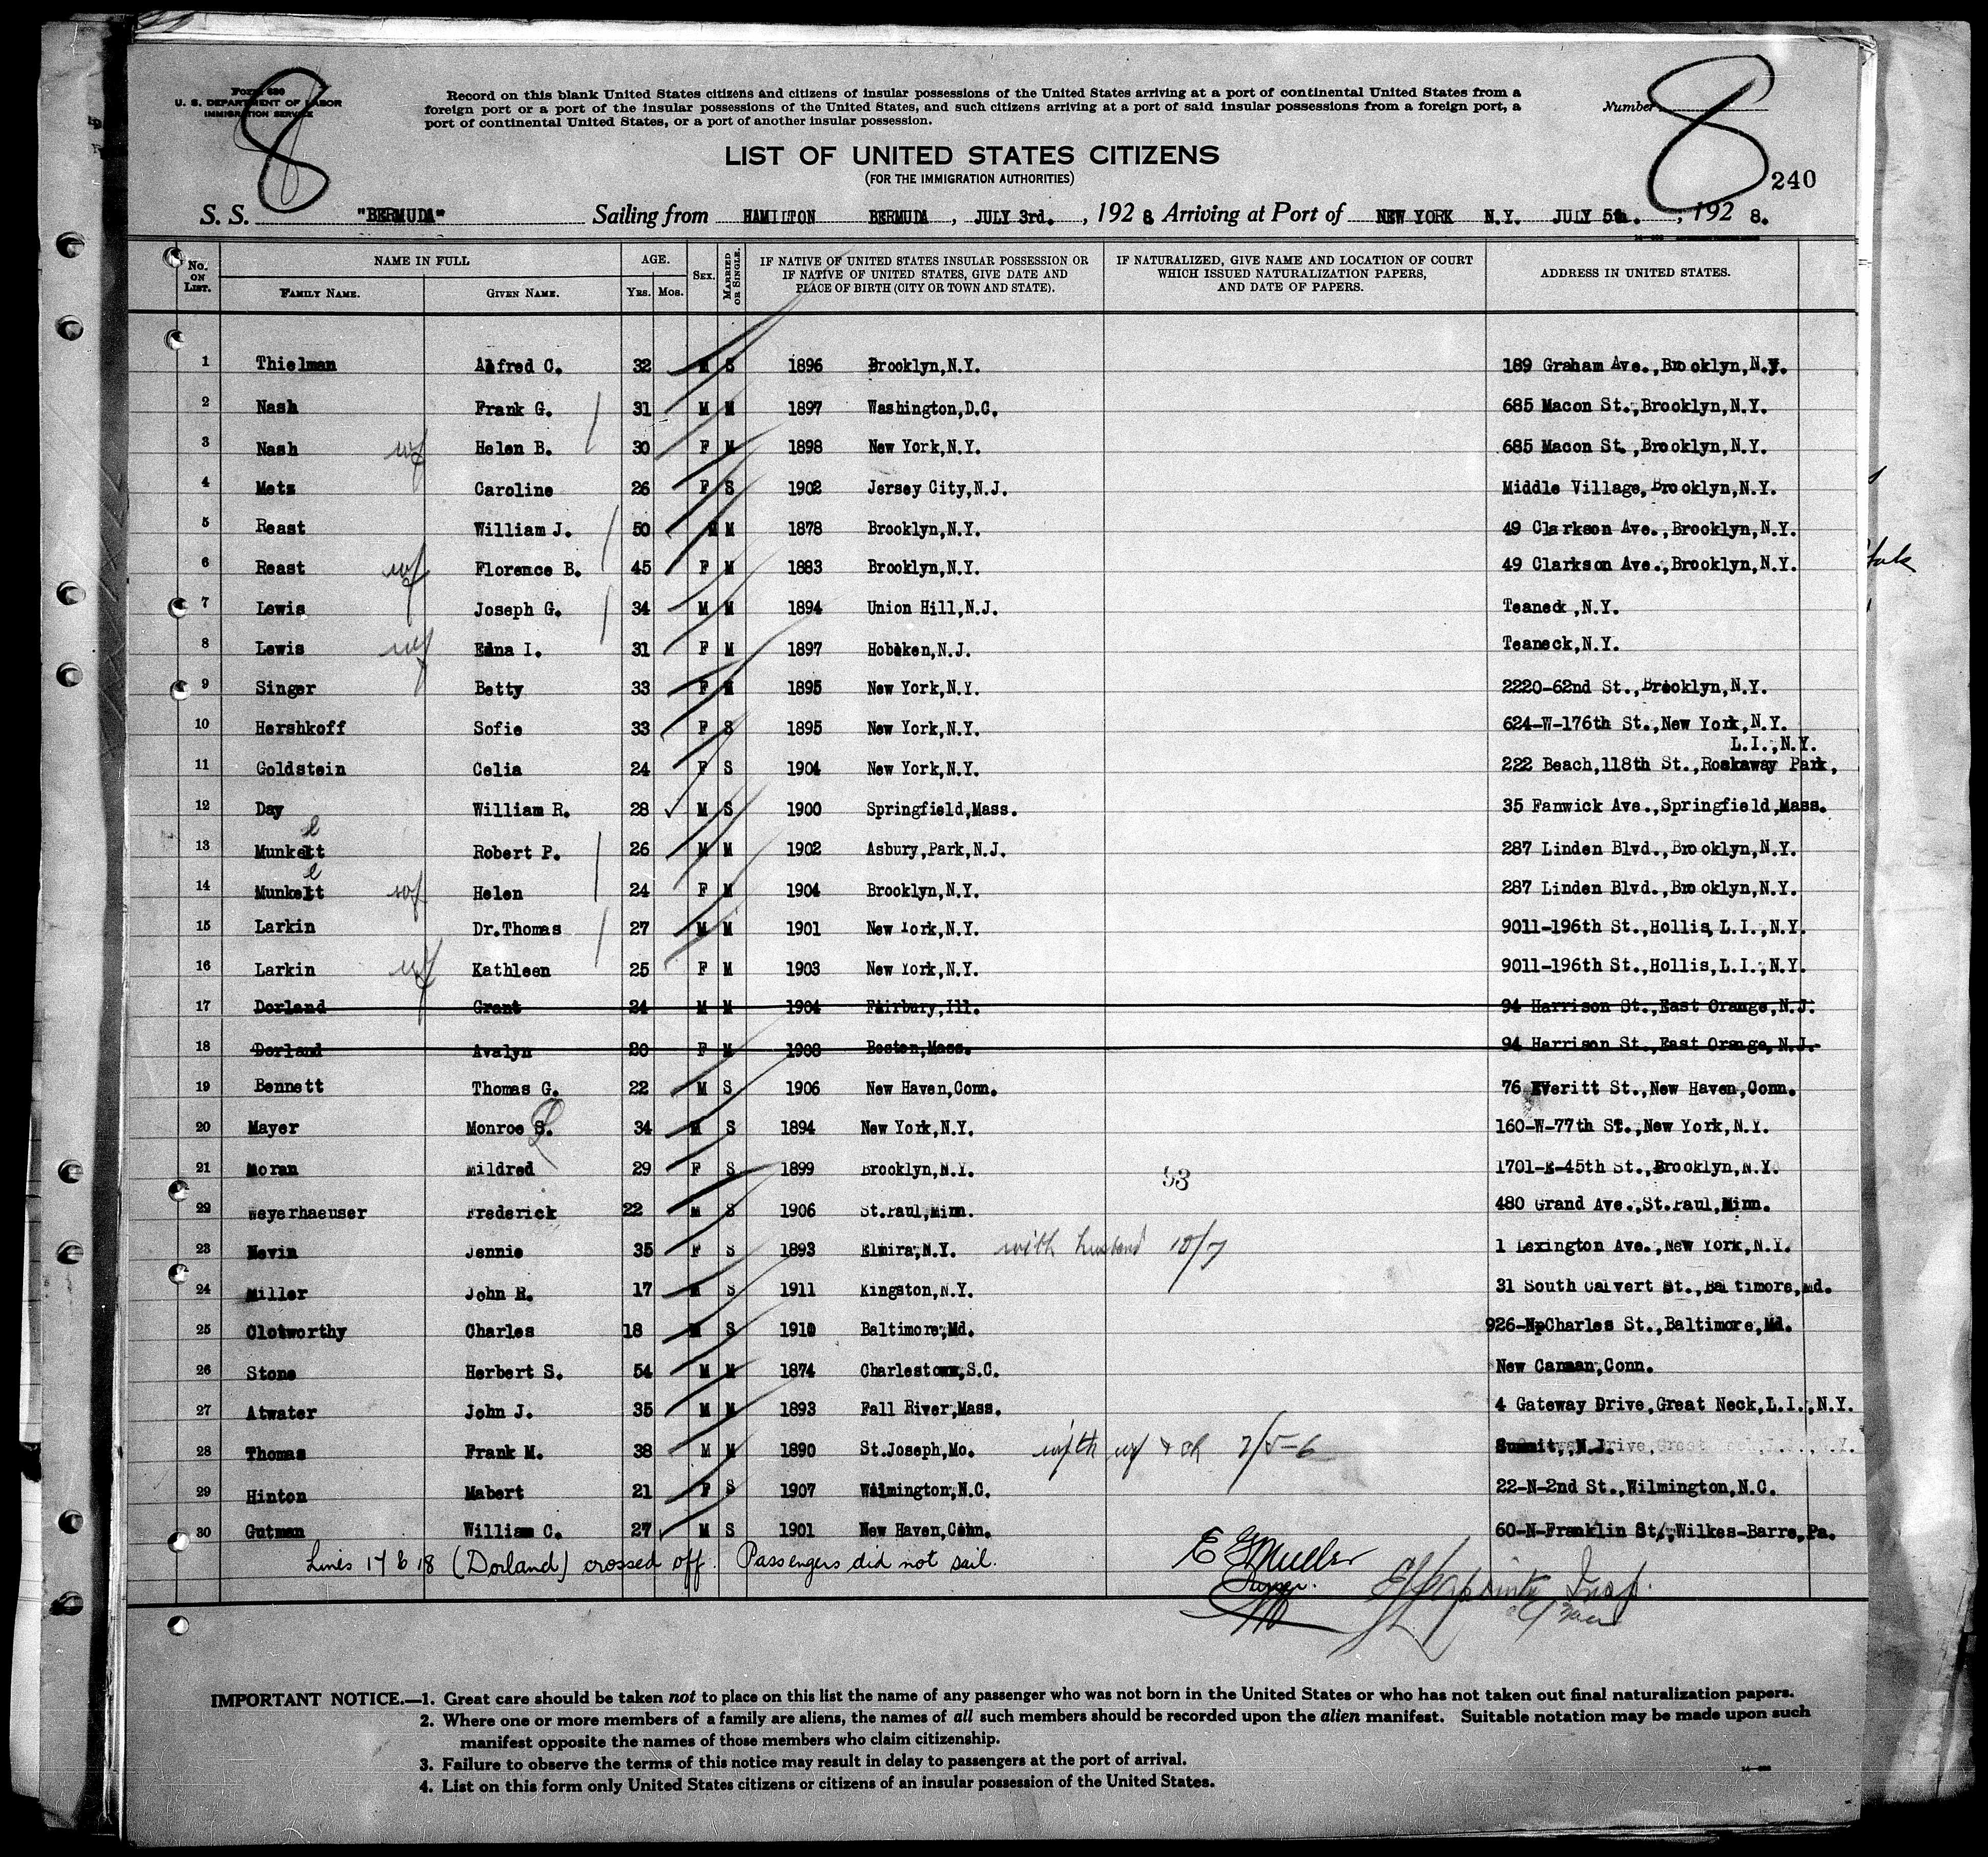 8
8
Form 630
U. S. DEPARTMENT OF LABOR
IMMIGRATION SERVICE
Record on this blank United States citizens and citizens of insular possessions of the United States arriving at a port of continental United States from a
foreign port or a port of the insular possessions of the United States, and such citizens arriving at a port of said insular possessions from a foreign port, a
port of continental United States, or a port of another insular possession.
Number
LIST OF UNITED STATES CITIZENS
(FOR THE IMMIGRATION AUTHORITIES)
240
S. S. "BERMUDA" Sailing from HAMILTON BERMUDA, JULY 3rd., 1928 Arriving at Port of NEW YORK N.Y. JULY 5th., 1928.
No. ON LIST. NAME IN FULL AGE. SEX. MARRIED OR SINGLE. IF NATIVE OF UNITED STATES INSULAR POSSESSION OR IF NATIVE OF UNITED STATES, GIVE DATE AND PLACE OF BIRTH (CITY OR TOWN AND STATE). IF NATURALIZED, GIVE NAME AND LOCATION OF COURT WHICH ISSUED NATURALIZATION PAPERS, AND DATE OF PAPERS. ADDRESS IN UNITED STATES.
FAMILY NAME. GIVEN NAME. YRS. MOS.
1 Thielman Alfred C. 32 M S 1896 Brooklyn,N.Y. 189 Graham Ave.,Brooklyn,N.Y.
2 Nash Frank G. 31 M M 1897 Washington,D.C. 685 Macon St.,Brooklyn,N.Y.
3 Nash wf Helen B. 30 F M 1898 New York,N.Y. 685 Macon St.,Brooklyn,N.Y.
4 Metz Caroline 26 F S 1902 Jersey City,N.J. Middle Village,Brooklyn,N.Y.
5 Reast William J. 50 M M 1878 Brooklyn,N.Y. 49 Clarkson Ave.,Brooklyn,N.Y.
6 Reast wf Florence B. 45 F M 1883 Brooklyn,N.Y. 49 Clarkson Ave.,Brooklyn,N.Y.
7 Lewis Joseph G. 34 M M 1894 Union Hill,N.J. Teaneck,N.Y.
8 Lewis wf Edna I. 31 F M 1897 Hoboken,N.J. Teaneck,N.Y.
9 Singer Betty 33 F M 1895 New York,N.Y. 2220-62nd St.,Brooklyn,N.Y.
10 Hershkoff Sofie 33 F S 1895 New York,N.Y. 624-W-176th St.,New York,N.Y.
L.I.,N.Y.
11 Goldstein Celia 24 F S 1904 New York,N.Y. 222 Beach,118th St.,Rockaway Park,
12 Day William R. 28 M S 1900 Springfield,Mass. 35 Fanwick Ave.,Springfield,Mass.
13 Munkett e Robert P. 26 M M 1902 Asbury,Park,N.J. 287 Linden Blvd.,Brooklyn,N.Y.
14 Munkett e wf Helen 24 F M 1904 Brooklyn,N.Y. 287 Linden Blvd.,Brooklyn,N.Y.
15 Larkin Dr.Thomas 27 M M 1901 New York,N.Y. 9011-196th St.,Hollis,L.I.,N.Y.
16 Larkin wf Kathleen 25 F M 1903 New York,N.Y. 9011-196th St.,Hollis,L.I.,N.Y.
17 Dorland Grant 24 M M 1904 Fairbury,Ill. 94 Harrison St.,East Orange,N.J.
18 Dorland Avalyn 20 F M 1908 Boston,Mass. 94 Harrison St.,East Orange,N.J.
19 Bennett Thomas G. 22 M S 1906 New Haven,Conn. 76 Everitt St.,New Haven,Conn.
20 Mayer Monroe S. 34 M S 1894 New York,N.Y. 160-W-77th ST.,New York,N.Y.
21 Moran Mildred 29 F S 1899 Brooklyn,N.Y. 1701-E-45th St.,Brooklyn,N.Y.
53
22 Weyerhaeuser Frederick 22 M S 1906 St.Paul,Minn. 480 Grand Ave.,St.Paul,Minn.
23 Nevin Jennie 35 F S 1893 Elmira,N.Y. with husband 10/7 1 Lexington Ave.,New York,N.Y.
24 Miller John R. 17 M S 1911 Kingston,N.Y. 31 South Calvert St.,Baltimore,Md.
25 Clotworthy Charles 18 M S 1910 Baltimore,Md. 926-N-Charles St.,Baltimore,Md.
26 Stone Herbert S. 54 M M 1874 Charlestown,S.C. New Canaan,Conn.
27 Atwater John J. 35 M M 1893 Fall River,Mass. 4 Gateway Drive,Great Neck,L.I.,N.Y.
28 Thomas Frank M. 38 M M 1890 St.Joseph,Mo. with wf & ch 7/5-6 Summit,N.J.
29 Hinton Mabert 21 F S 1907 Wilmington,N.C. 22-N-2nd St.,Wilmington,N.C.
30 Gutman William C. 27 M S 1901 New Haven,Conn. 60-N-Franklin St.,Wilkes-Barre,Pa.
Lines 17 & 18 (Dorland) crossed off. Passengers did not sail. E G Muller
Purser.
Insp.
IMPORTANT NOTICE.—1. Great care should be taken not to place on this list the name of any passenger who was not born in the United States or who has not taken out final naturalization papers.
2. Where one or more members of a family are aliens, the names of all such members should be recorded upon the alien manifest. Suitable notation may be made upon such
manifest opposite the names of those members who claim citizenship.
3. Failure to observe the terms of this notice may result in delay to passengers at the port of arrival.
4. List on this form only United States citizens or citizens of an insular possession of the United States.